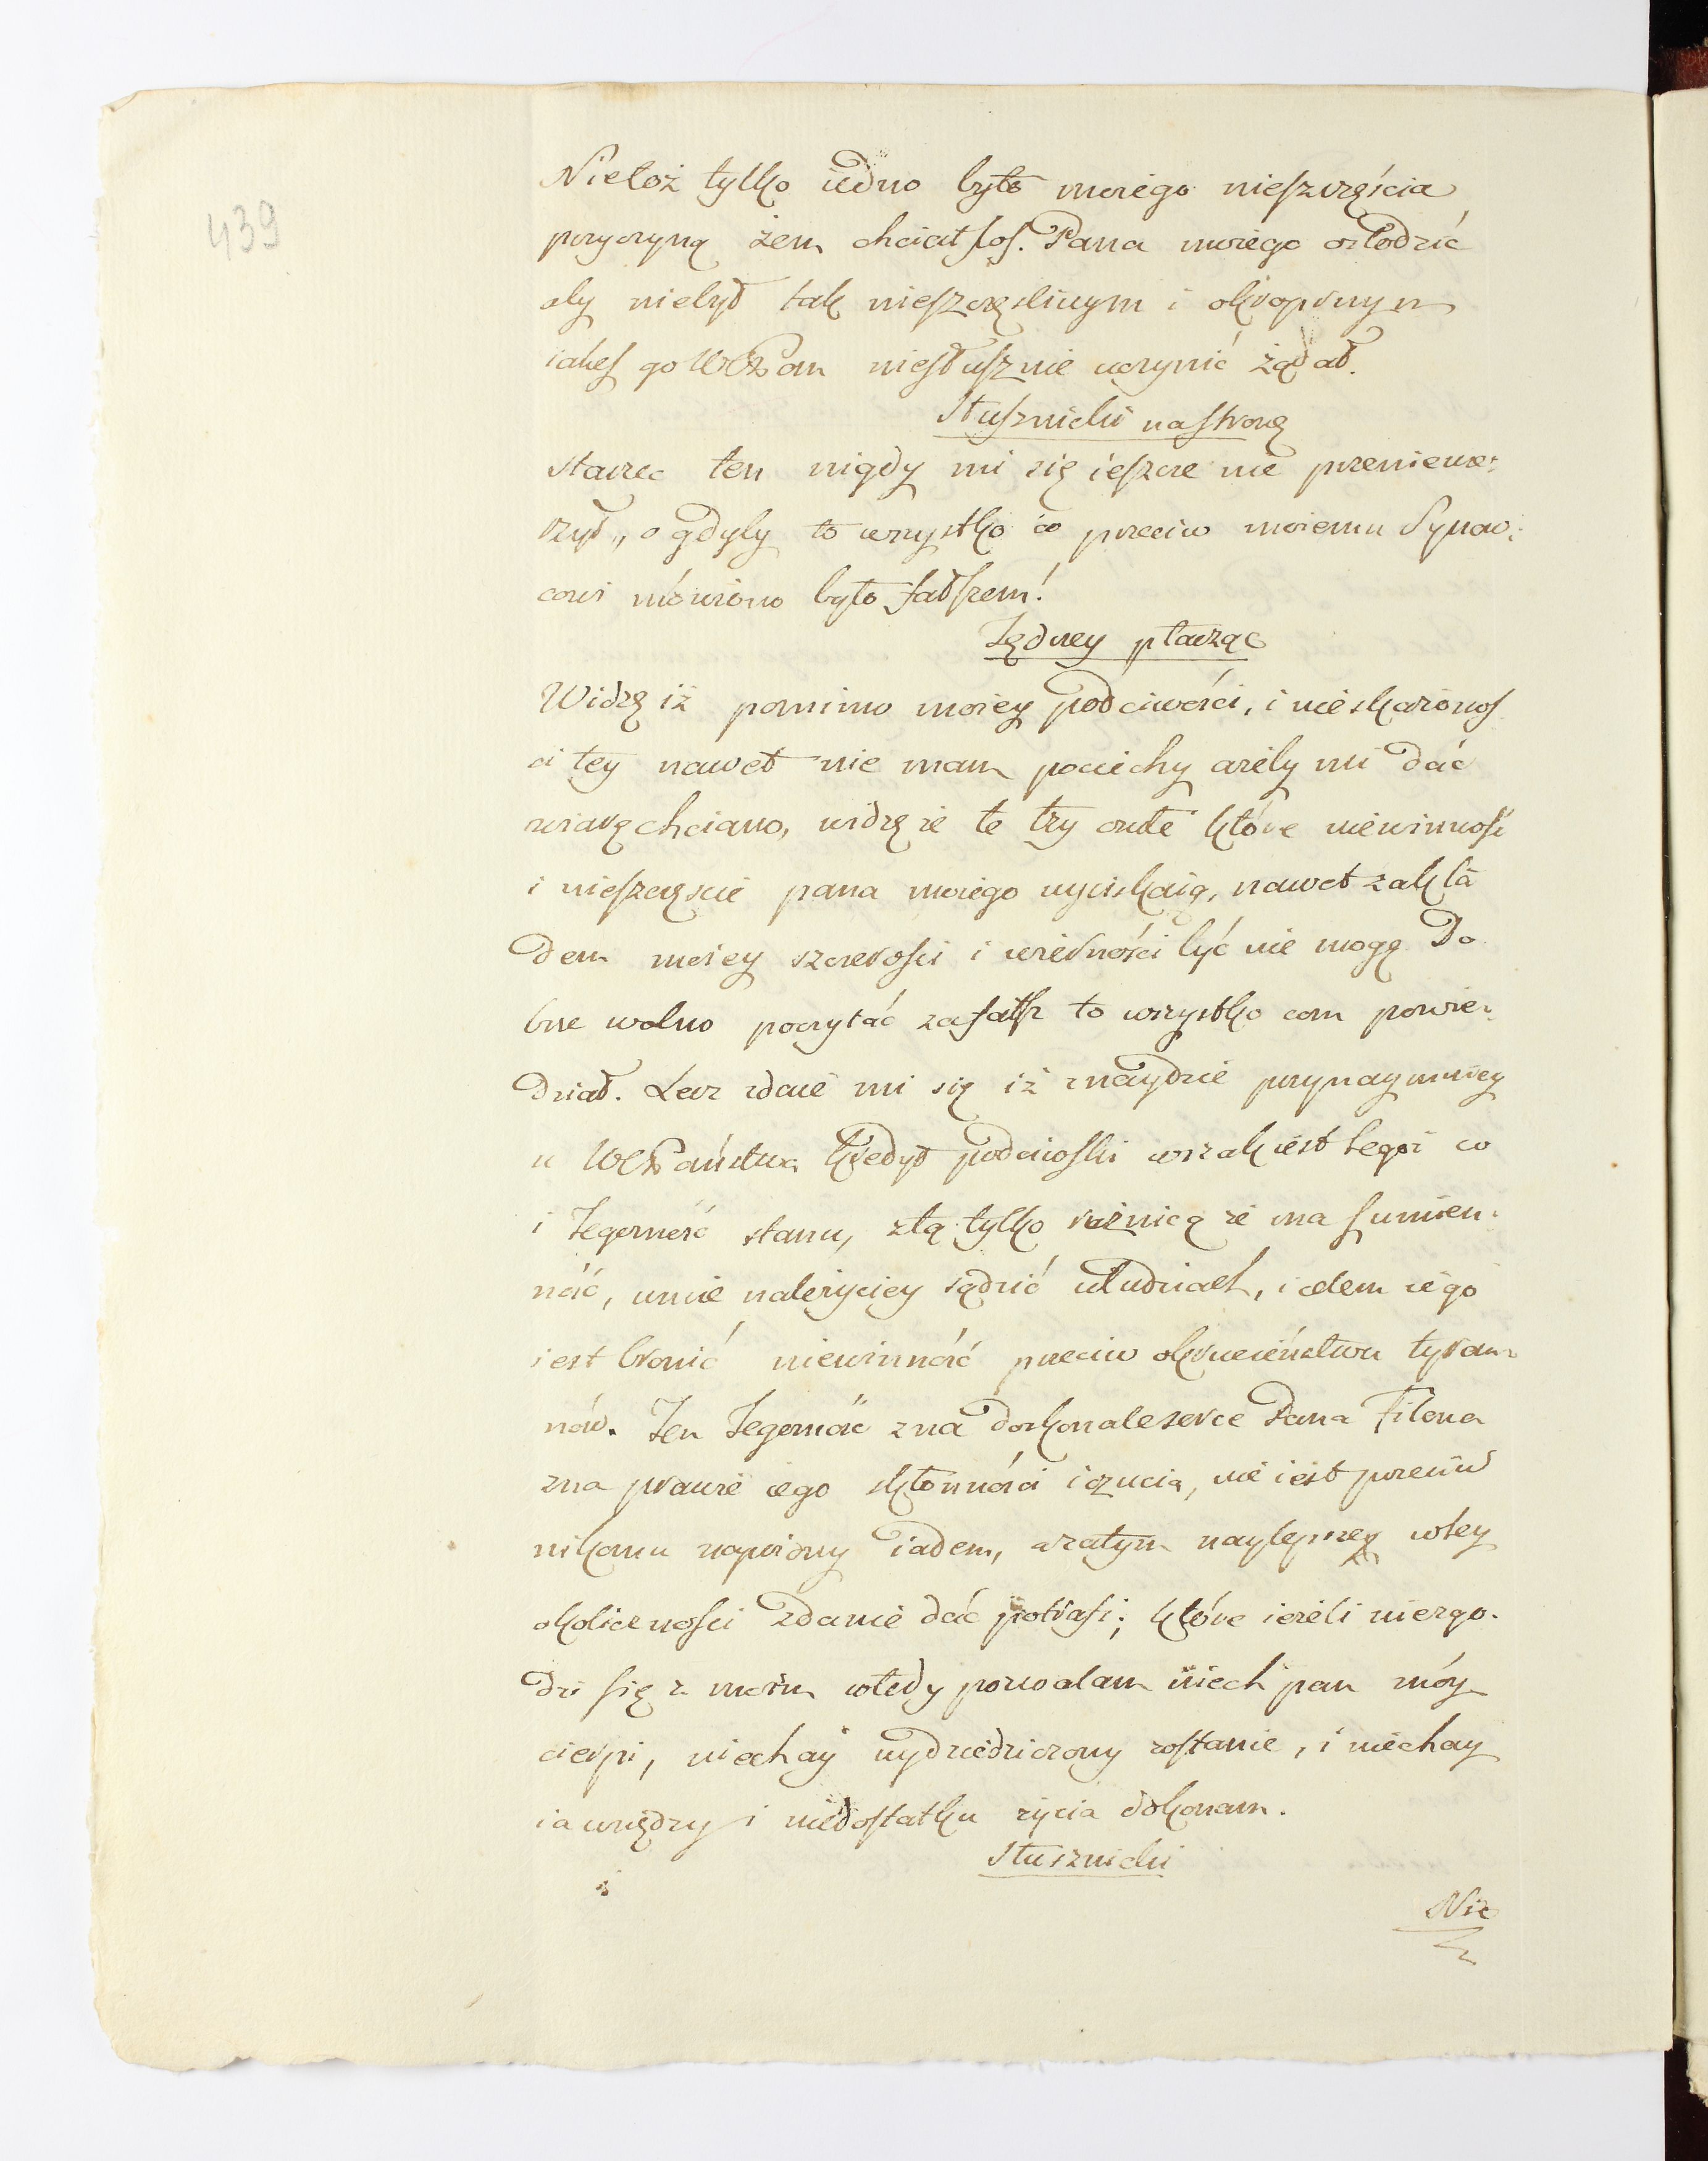 439
Nietoż tylko iedno było moiego nieszczęścia
przyczyną żem chciał los. Pana moiego osłodzić
aby niebył tak nieszczęśliwym i okropnym
iakeś go WCPan niesłusznie uczynić żądał.
Słusznicki na stronę
starzec ten nigdy mi się ieszcze nie przeniewie:
rzył, o gdyby to wszystko co przeciw moiemu Synow:
cowi mówiono było fałszem!
Jędrzey płacząc
Widzę iż pomimo moiey poćciwości, i nieskażonoś
ci tey nawet nie mam pociechy ażeby mi dać
wiarę chciano, widzę że te łzy czułe które niewinność
i nieszczęście pana moiego wyciskaią, nawet zakła
dem moiey szczerości i wierności być nie mogą. Do
brze wolno poczytać za fałsz to wszystko com powie:
dział. Lecz zdaie mi się iż znaydzie przynaymniey
u WCPaństwa kredyt podcioski wszak iest tegoż co
i Jegomość stanu, z tą tylko różnicą że ma sumien:
ność, umie należyciey sądzić o ludziach, i celem iego
iest bronić niewinność przeciw okrucieństwu tyran:
nów. Ten Jegomość zna doskonale serce Pana Filona
zna prawie iego skłonności i czucia, nie iest przeciw
nikomu napoiony iadem, a zatym naylepszey w tey
okoliczności zdanie dać potrafi; które ieżeli niezgo:
dzi się z moim wtedy pozwalam niech pan móy
cierpi, niechay wydziedziczony zostanie, i niechay
ia w nędzy i niedostatku życia dokonam.
Słusznicki
Nie